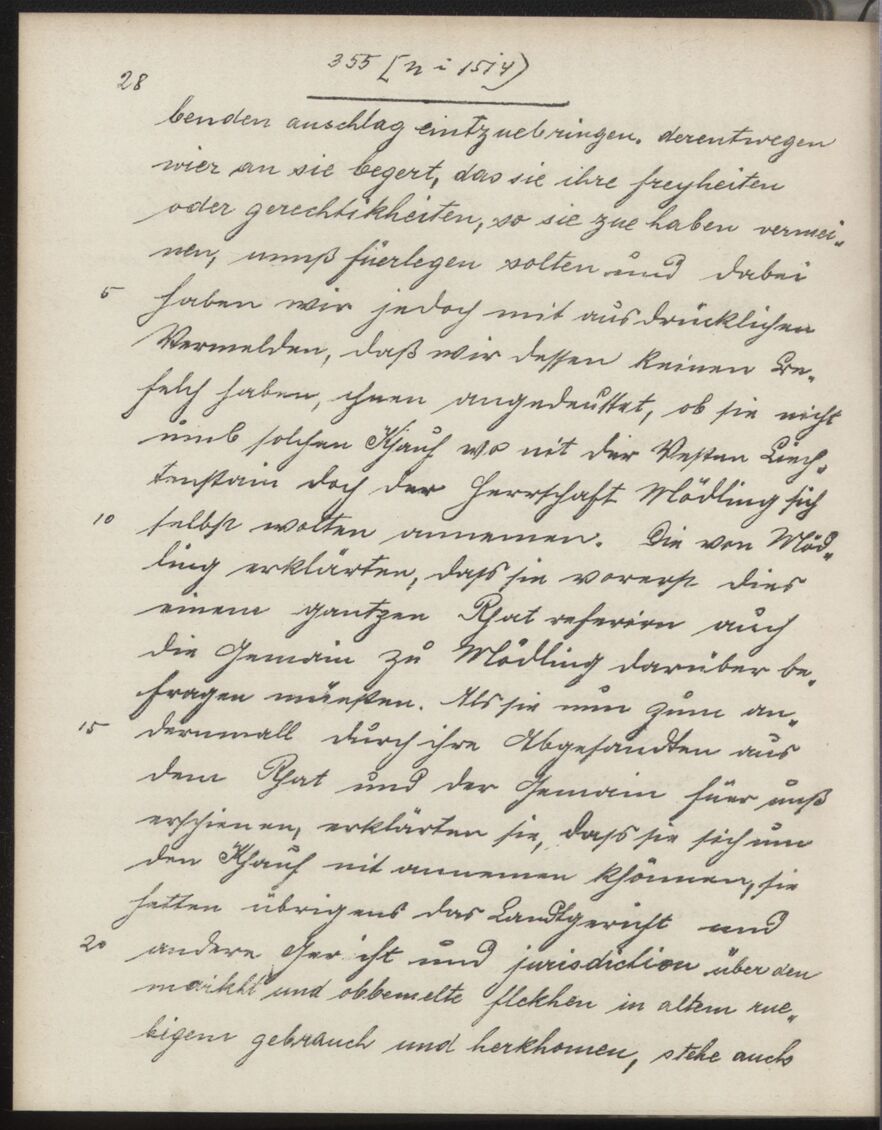 28
355 [N i 1514)
benden anschlag eintzuebringen. derentwegen
wier an sie begert, das sie ihre freyheiten
oder gerechtikheiten, so sie zue haben vermei„
nen, unnß füerlegen solten und dabei
5 haben wir jedoch mit ausdrücklichen
Vermelden, daß wir dessen keinen Be„
felch haben, ihnen angedeuttet, ob sie nicht
umb solchen Khauf wo nit der Vesten Liech„
tenstain doch der Herrschaft Mödling sich
10 selbst wolten annemen. Die von Möd„
ling erklärten, dass sie vorerst dies
einem gantzen Rhat referirn auch
die Gemain zu Mödling darüber be„
fragen müesten. Als sie nun zum an„
15 dernmall durch ihre Abgesandten aus
dem Rhat und der Gemain füer unß
erschienen, erklärten sie, dass sie sich um
den Khauf nit annemen khönnen, sie
hetten übrigens das Landtgericht und
20 andere Gericht und jurisdiction über den
markht und obbemelte flekhen in altem rue„
bigem gebrauch und herkhomen, stehe auch